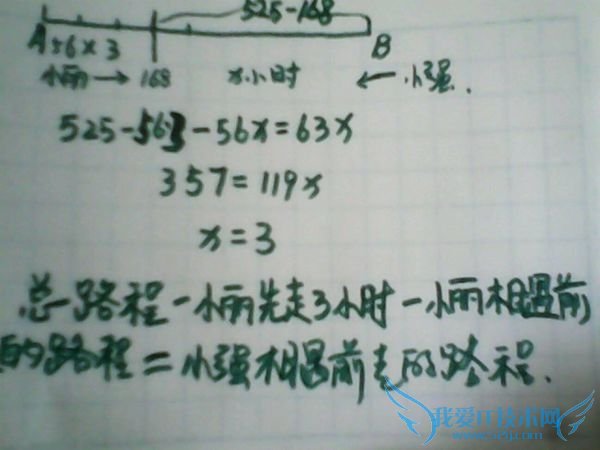 525-168
A 56×3 B
小丽→ 168 x小时 ← 小强.
525-56·3-56x=63x
357=119x
x=3
总路程-小丽先走3小时-小丽相遇前
的路程=小强相遇前走的路程.
我爱IT技术网